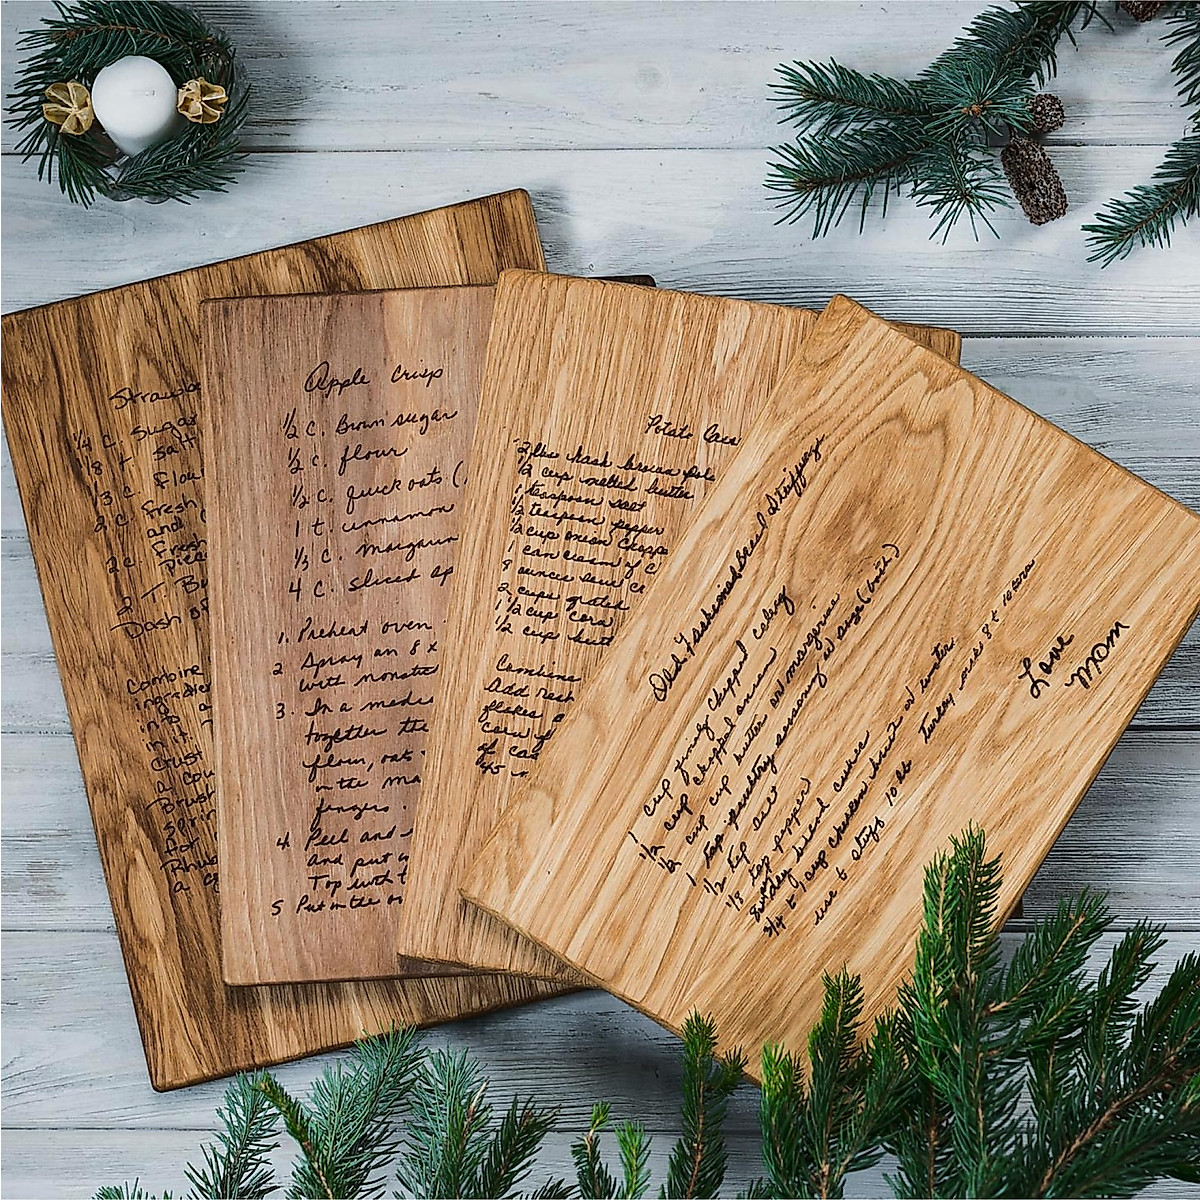 Strawbe
1/4 c. sugar
1/8 t salt
1/3 c. Flou
2 c. Fresh
and
2 c. Fresh
piece
2 T. Bu
Dash of
Combine
ingredien
into a
in it.
crust
a cou
Brush
sprin
for
Rhub
a
Apple Crisp
1/2 c. Brown sugar
1/2 c. flour
1/2 c. quick oats (
1 t. cinnamon
1/3 c. Margarin
4 c. sliced ap
1. Preheat oven
2 Spray an 8 x
with nonstic
3. In a mediu
together the
flour, oats
in the ma
fingers.
4. Peel and
And put
Top with t
5 Put in the ov
Potato Cass
2 lbs hash brown pota
1/2 cup melted butter
1 teaspoon salt
1/2 teaspoon pepper
1/2 cup onion chopp
1 can cream of c
8 ounces sour cr
2 cups grated
1 1/2 cup corn
1/2 cup butt
Combine
Add rem
flakes
corn f
of cas
45 m
Old Fashioned Bread Stuffing
1/2 cup finely chopped celery
1/2 cup chopped onion
1/2 cup butter or margarine
1 tsp poultry seasoning or sage (both)
1/2 tsp salt
1/8 tsp pepper
8 cups dry bread cubes
3/4 to 1 cup chicken broth or water
use to stuff 10 lb Turkey makes 8 to 10
Love
Mom